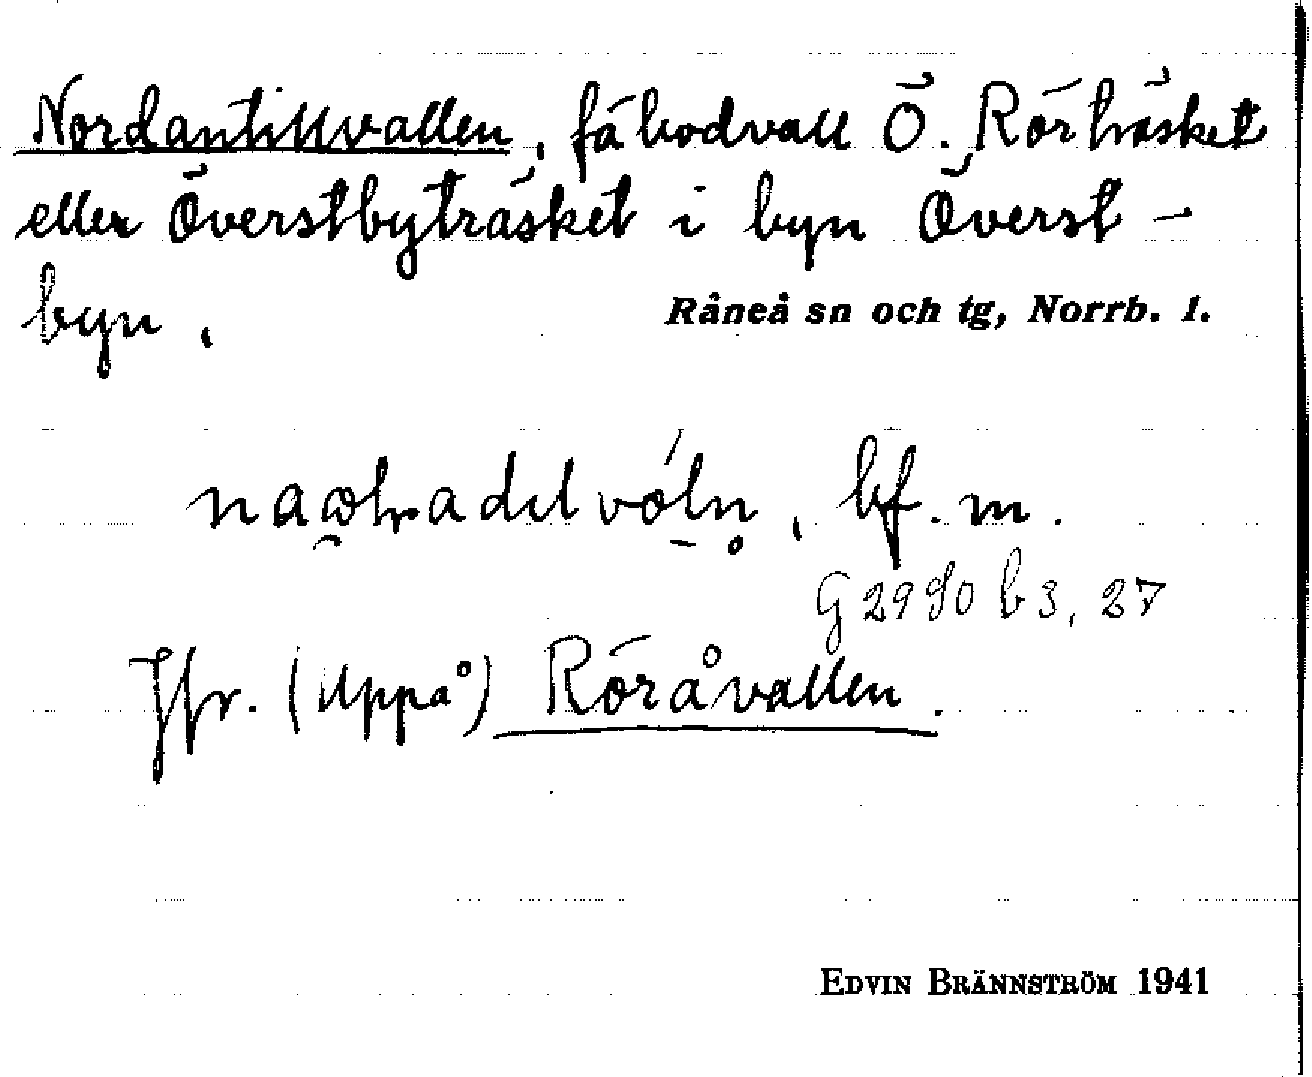 Nordantillvallen, fäbodvall Ö. Rörträsket
eller Överstbyträsket i byn Överst-
byn.
Råneå sn och tg, Norrb. l.
bf. m.
G 2980 b 3, 27
Jfr. (Uppå) Röråvallen.
EDVIN BRÄNNSTRÖM 1941